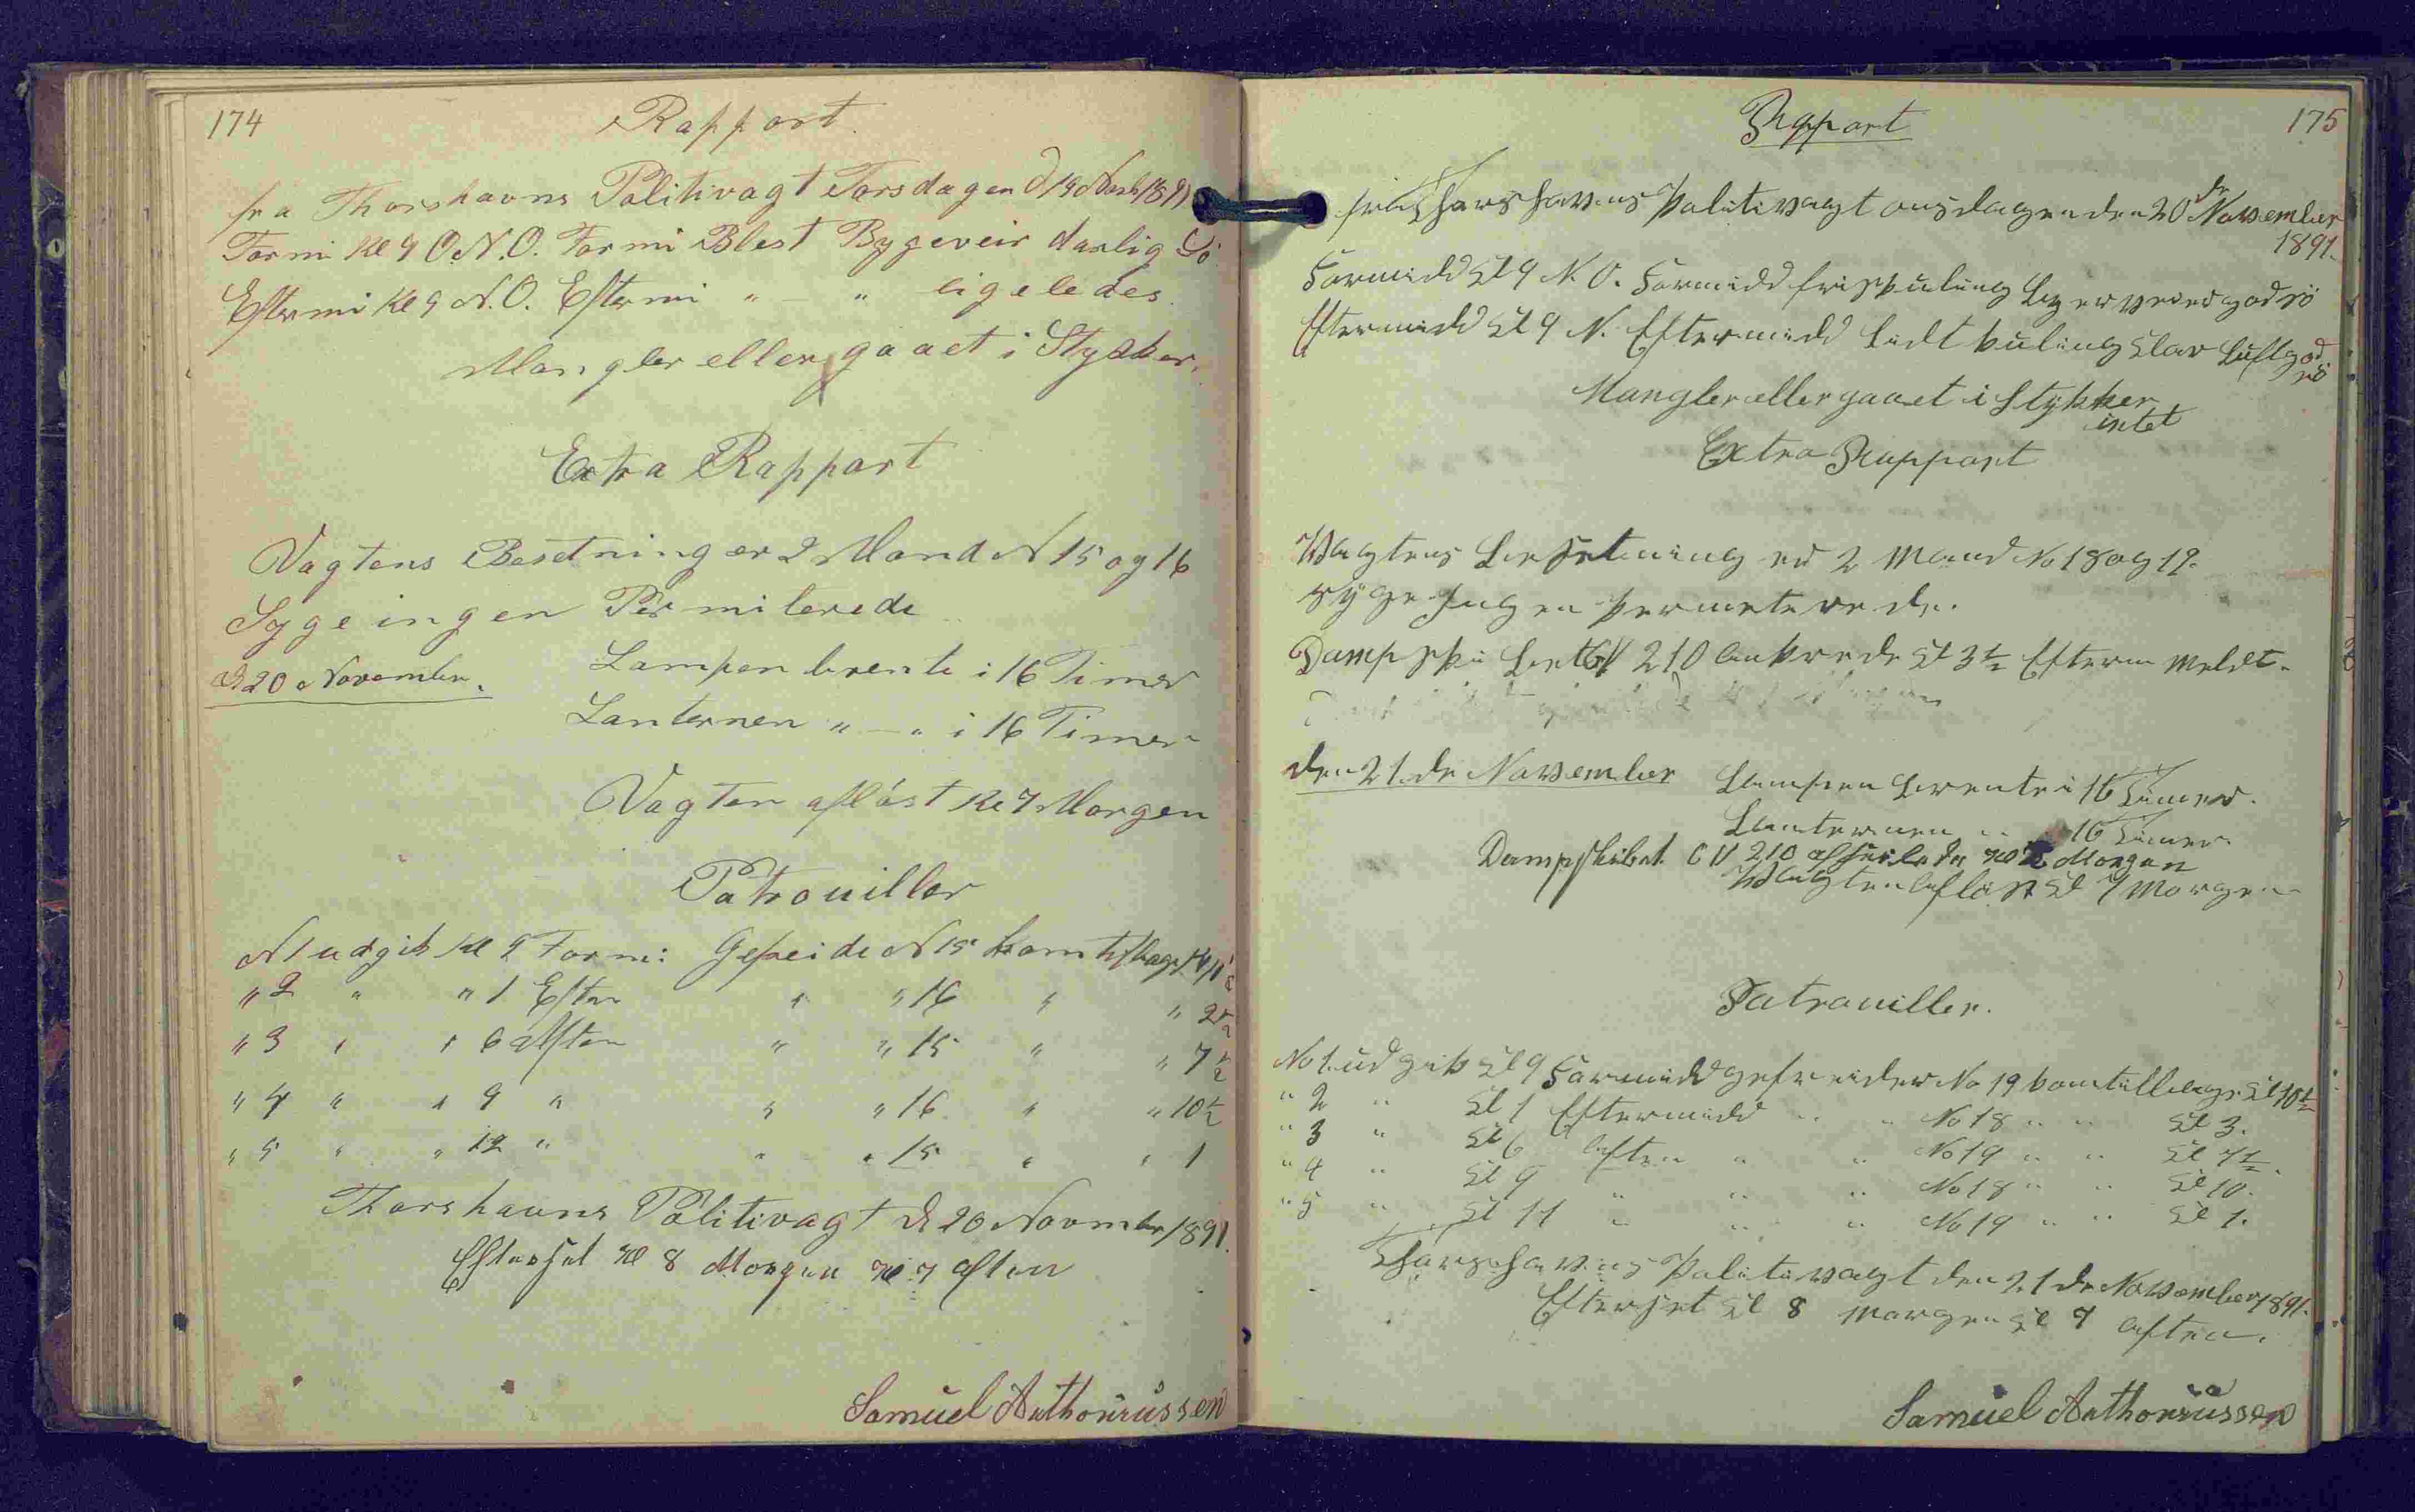 174
Rapport.
fra Thorshavns Politivagt Torsdagen d 19 Novb 1891
Formi Kl 9 O.N.O. Formi Blest Bygeveir darlig Sö
Eftermi Kl 9 N.O. Eftermi " — " ligeledes.
Mangler eller gaaet i Stykker.
Extra Rapport
Vagtens Besetning er 2 Mand N 15 og 16
Syge ingen Permiterede
d 20 November.
Lampen brente i 16 Timer
Lanternen " — " i 16 Timer
Vagten aflöst Kl 7 Morgen
Patrouiller
N 1 udgik Kl 9 Formi: Gefreide N 15 kom tilbage Kl
" 2 " " 1 Efter " " 16 " " 2½
" 3 " " 6 Aften " " 15 " " 7½
" 4 " " 9 " " " 16 " " 10½
" 5 " " 12 " " " 15 " " 1
Thorshavns Politivagt d 20 Novmber 1891.
Efterset Kl 8 Morgen Kl 7 Aften
Samuel Anthoniussen
175
Rapport
fra Thorshavns Politivagt onsdagen den 20 de November
1891.
Formidd Kl 9 N. O. Formidd frisk kuling Byerveir god sö
Eftermidd Kl 9 N. Eftermidd Lidt kuling Klar Luft god
sö
Mangler eller gaaet i Stykker
intet
Extra Rapport
Vagtens Besetning er 2 Mand No 18 og 19.
syge Ingen permeterede.
Dampski bet GV 210 ankrede Kl 3½ Efterm Meldt.
den 21. de November
Lampen brente i 16 Timer.
Lanternen " " 16 Timer
Dampskibet GV 210 afseilede Kl Morgen
Vagten aflöst Kl 7 Morgen
Patrouiller.
No 1. udgik Kl 9 Formidd gefreider No 19 kom tilbage Kl 10½
" 2 " Kl 1 Eftermidd " " No 18 " " Kl 3.
" 3 " Kl 6 Aften " " No 19 " " Kl 7½.
" 4 " Kl 9 " " " No 18 " " Kl 10.
" 5 " Kl 11 " " " No 19 " " Kl 1.
Thorshavns Politivagt den 21 de November 1891.
Efterset Kl 8 Morgen Kl 7 Aften.
Samuel Anthoniussen